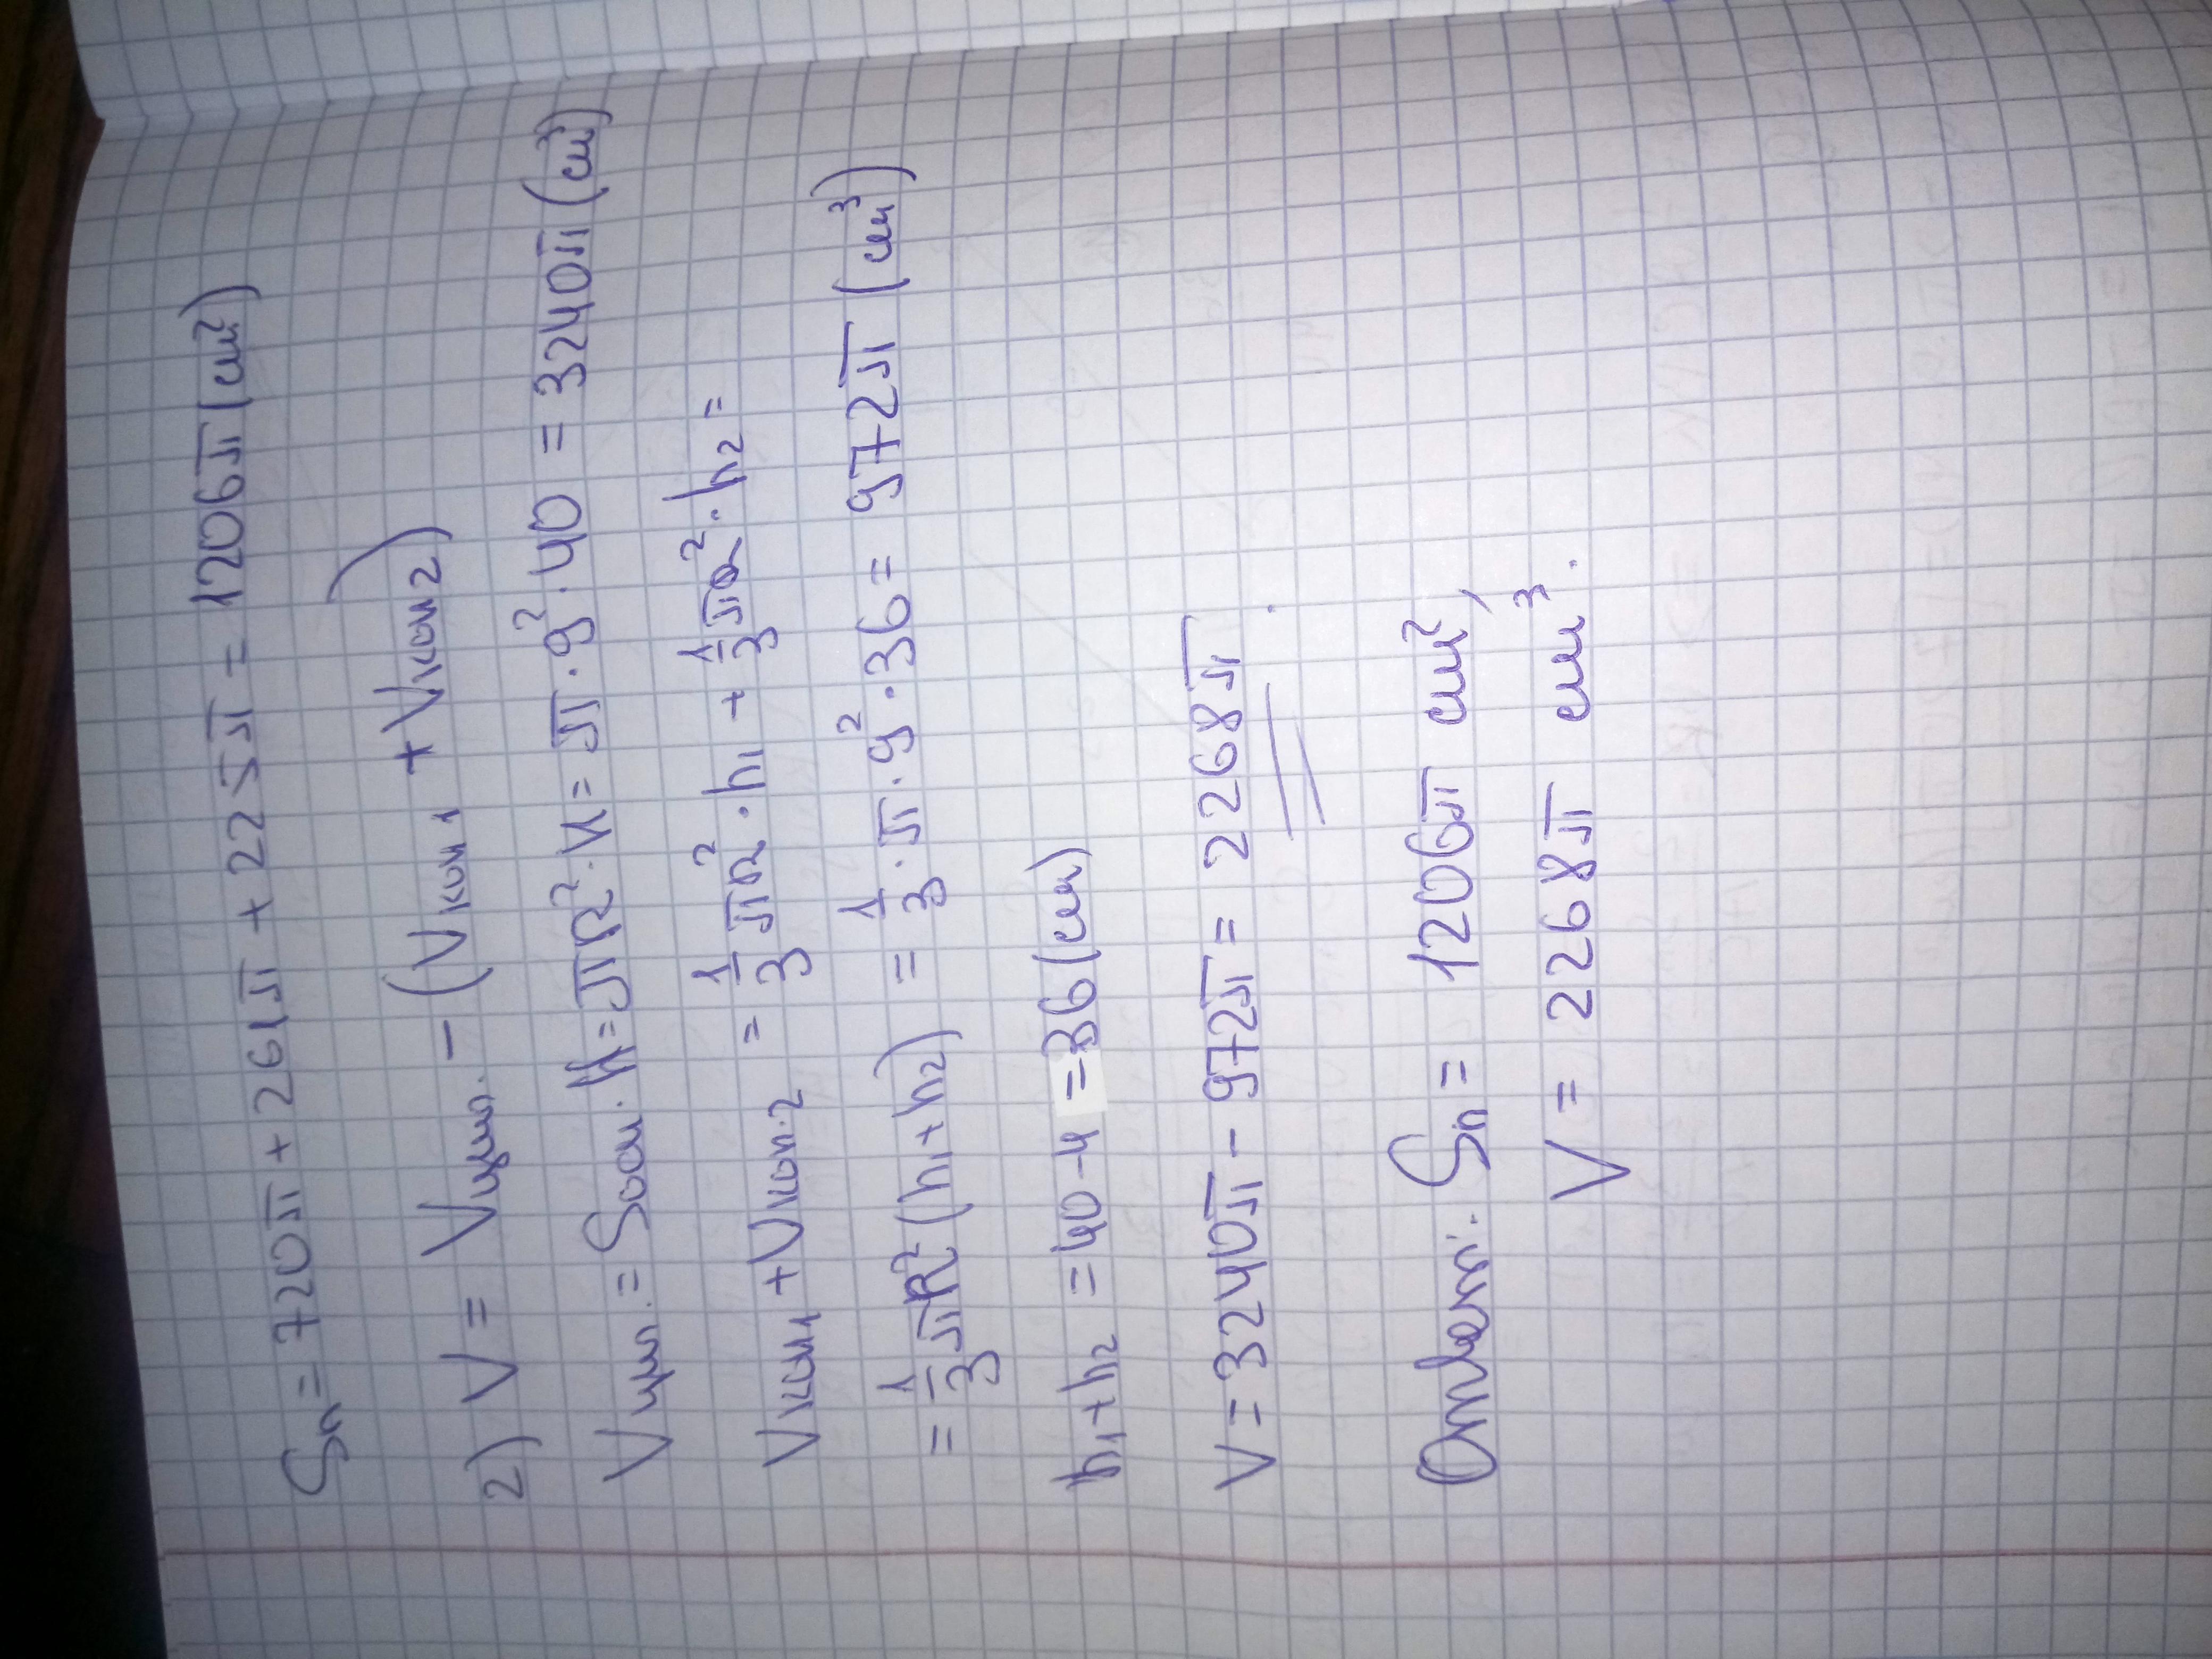 Sп = 720π + 261π + 225π = 1206π (см²)
2) V = Vцил. − (Vкон1 + Vкон2)
Vцил. = Sосн. · H = πR² · H = π · 9² · 40 = 3240π (см³)
Vкон1 + Vкон.2 = 1/3 πR² · h₁ + 1/3 πR² · h₂ =
= 1/3 πR² (h₁ + h₂) = 1/3 · π · 9² · 36 = 972π (см³)
h₁ + h₂ = 40 - 4 = 36 (см)
V = 3240π − 972π = 2268π.
Ответ: Sп = 1206π см²,
V = 2268π см³.